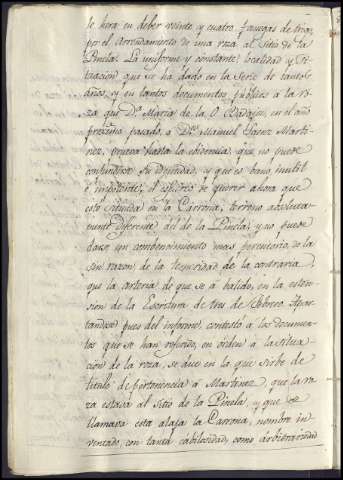 se hira en deber veinte y cuatro fanegas de trigo,
por el Arrendamiento de una roza al Sitio de la
Pinela. La uniforme y constante localidad y Si-
tuacion que se ha dado en la Serie de tantos
años, y en tantos documentos publicos a la ro-
za que Dª Maria de la O Badajoz, en el año
proximo pasado, a Dn Manuel Saenz Marti-
nez, prueva hasta la ebidencia que no puede
confundirse su identidad, y que es bano, inutil
é impudente, el esfuerzo de querer ahora que
esté situada en la Carrona, terreno absoluta-
mente diferente del de la Pinela; y no puede
darse un combencimiento mas perentorio de la
sin razon, de la temeridad de la contraria,
que la de que se á balido, en la esten-
sion de la Escritura de tres de Febrero. Apar-
tandose pues del informe, contesto a los documen-
tos que se han referido, en orden a la situa-
cion de la roza, se dice en la que sirbe de
titulo de pertenencia á Martinez, que la ro-
za estava al Sitio de la Pinela, y que se
llamava esta alaja la Carrona, nombre in-
ventado, con tanta cabilosidad, como arbitrariedad